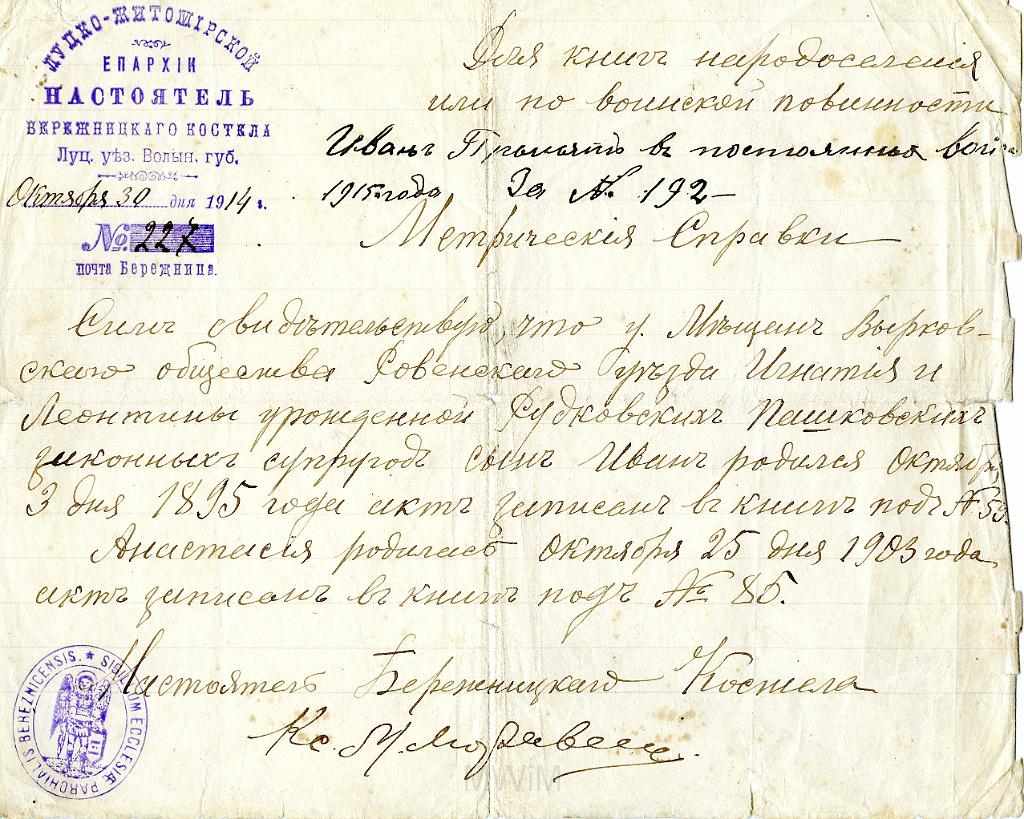 ЛУЦКО-ЖИТОМІРСКОЙ
ЕПАРХІИ
НАСТОЯТЕЛЬ
БЕРЕЖНИЦКАГО КОСТЕЛА
Луц. уѣз. Волын. губ.
Октября 30 дня 1914 г.
№ 227
почта Бережница.
Для книгъ народоселенія
или по воинской повинности
Иванъ въ
1915 года За № 192
Метрическія Справки
Симъ свидѣтельствую, что у Мѣщанъ Вырков-
скаго общества Ровенскаго уѣзда Игнатія и
Леонтины урожденной Рудковскихъ Пашковскихъ
законныхъ супруговъ сынъ Иванъ родился Октября
3 дня 1895 года актъ записанъ въ книгѣ подъ №
Анастасія родилась Октября 25 дня 1903 года
актъ записанъ въ книгѣ подъ № 85.
Настоятель Бережницкаго Костела
Кс.
SIGILLUM ECCLESIÆ PAROHIALIS BEREZNICENSIS.
MWiM